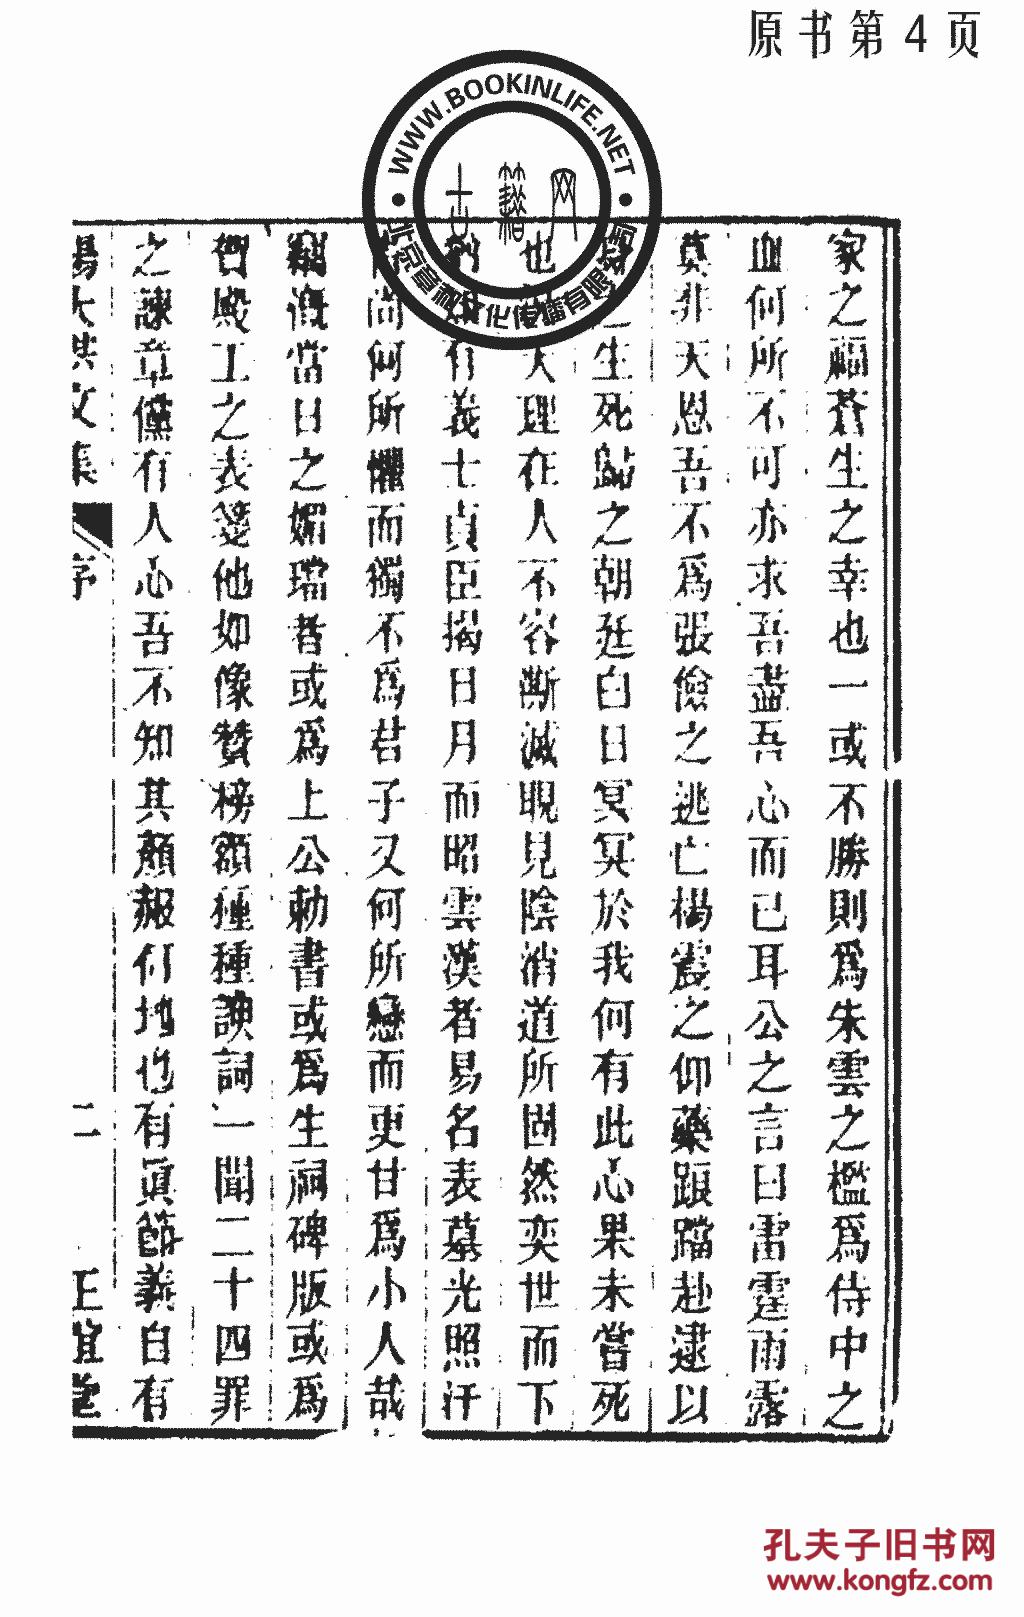 原书第4页
WWW.BOOKINLIFE.NET
家之福蒼生之幸也一或不勝則爲朱雲之檻爲侍中之
血何所不可亦求吾盡吾心而已耳公之言曰雷霆雨露
莫非天恩吾不爲張儉之逃亡楊震之仰藥踉蹌赴逮以
生死歸之朝廷白日冥冥於我何有此心果未嘗死
也大理在人不容斷滅睍見陰消道所固然奕世而下
有義士貞臣揭日月而昭雲漢者易名表墓光照汗
尚何所懼而獨不爲君子又何所戀而更甘爲小人哉
當日之媚璫者或爲上公勅書或爲生祠碑版或爲
督殿工之表箋他如像贊榜額種種諛詞一聞二十四罪
之諫章儻有人心吾不知其顏赧何地也有眞節義自有
楊大洪文集
序
二
正誼堂
孔夫子旧书网
www.kongfz.com